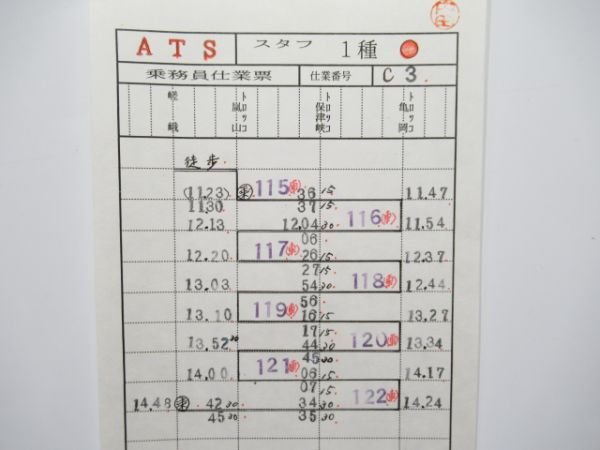 ATS スタフ 1種
乗務員仕業票 仕業番号 C 3.
嵯峨 トロッコ嵐山 トロッコ保津峡 トロッコ亀岡
徒歩
(11.23) 乗 115 36 15 11.47
11.30 37 15
12.13 12.04 30 116 11.54
06
12.20 117 26 15 12.37
27 15
13.03 54 30 118 12.44
56
13.10 119 16 15 13.27
17 15
13.52 30 44 30 120 13.34
45 30
14.00 121 06 15 14.17
07 15
14.48 乗 42 30 34 30 122 14.24
45 30 35 30